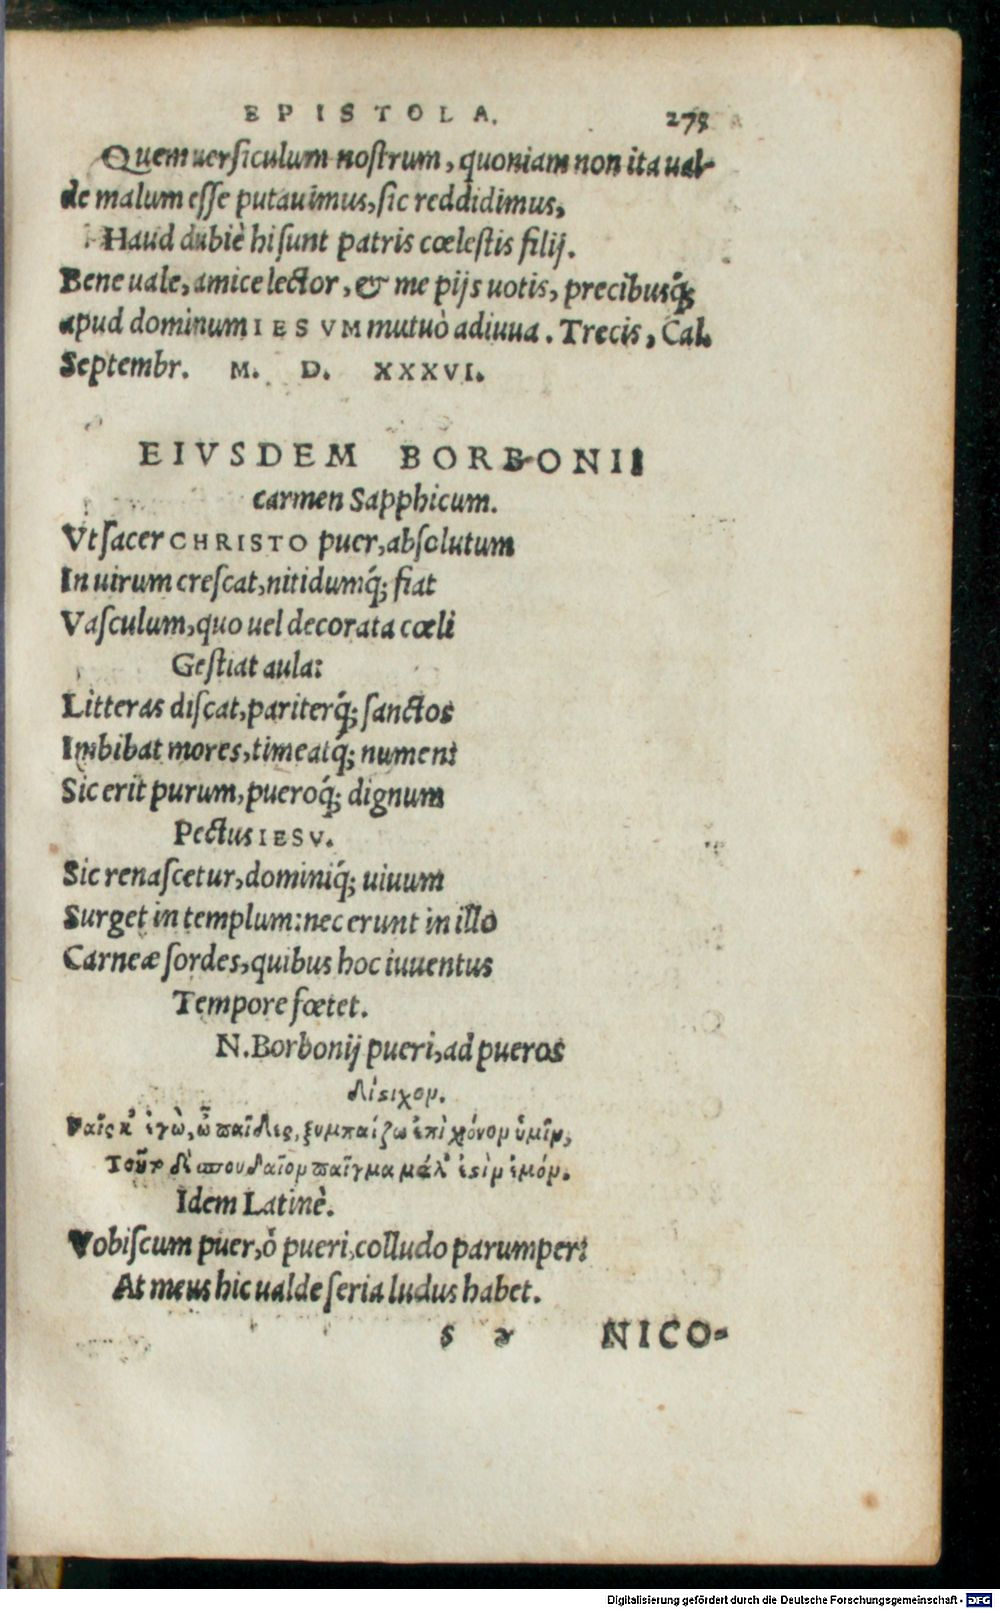 EPISTOLA. 275
Quem uersiculum nostrum, quoniam non ita ual-
de malum esse putauimus, sic reddidimus,
Haud dubiè hi sunt patris cœlestis filij.
Bene uale, amice lector, & me pijs uotis, precibusq́;
apud dominum IESVM mutuò adiuua. Trecis, Cal.
Septembr. M. D. XXXVI.
EIVSDEM BORBONII
carmen Sapphicum.
Vt sacer CHRISTO puer, absolutum
In uirum crescat, nitidumq́; fiat
Vasculum, quo uel decorata cœli
Gestiat aula:
Litteras discat, pariterq́; sanctos
Imbibat mores, timeatq́; numen:
Sic erit purum, pueroq́; dignum
Pectus IESV.
Sic renascetur, dominiq́; uiuum
Surget in templum: nec erunt in illo
Carneæ sordes, quibus hoc iuuentus
Tempore fœtet.
N. Borbonij pueri, ad pueros
δίςιχον.
Παῖς κ' ἐγὼ, ὦ παῖδες, ξυμπαίζω ἐπὶ χρόνον ὑμῖν,
Τοῦτο δὲ σπουδαῖον παῖγμα μάλ' ἐςὶν ἐμόν.
Idem Latinè.
Vobiscum puer, ô pueri, colludo parumper:
At meus hic ualde seria ludus habet.
s 2 NICO-
Digitalisierung gefördert durch die Deutsche Forschungsgemeinschaft - DFG